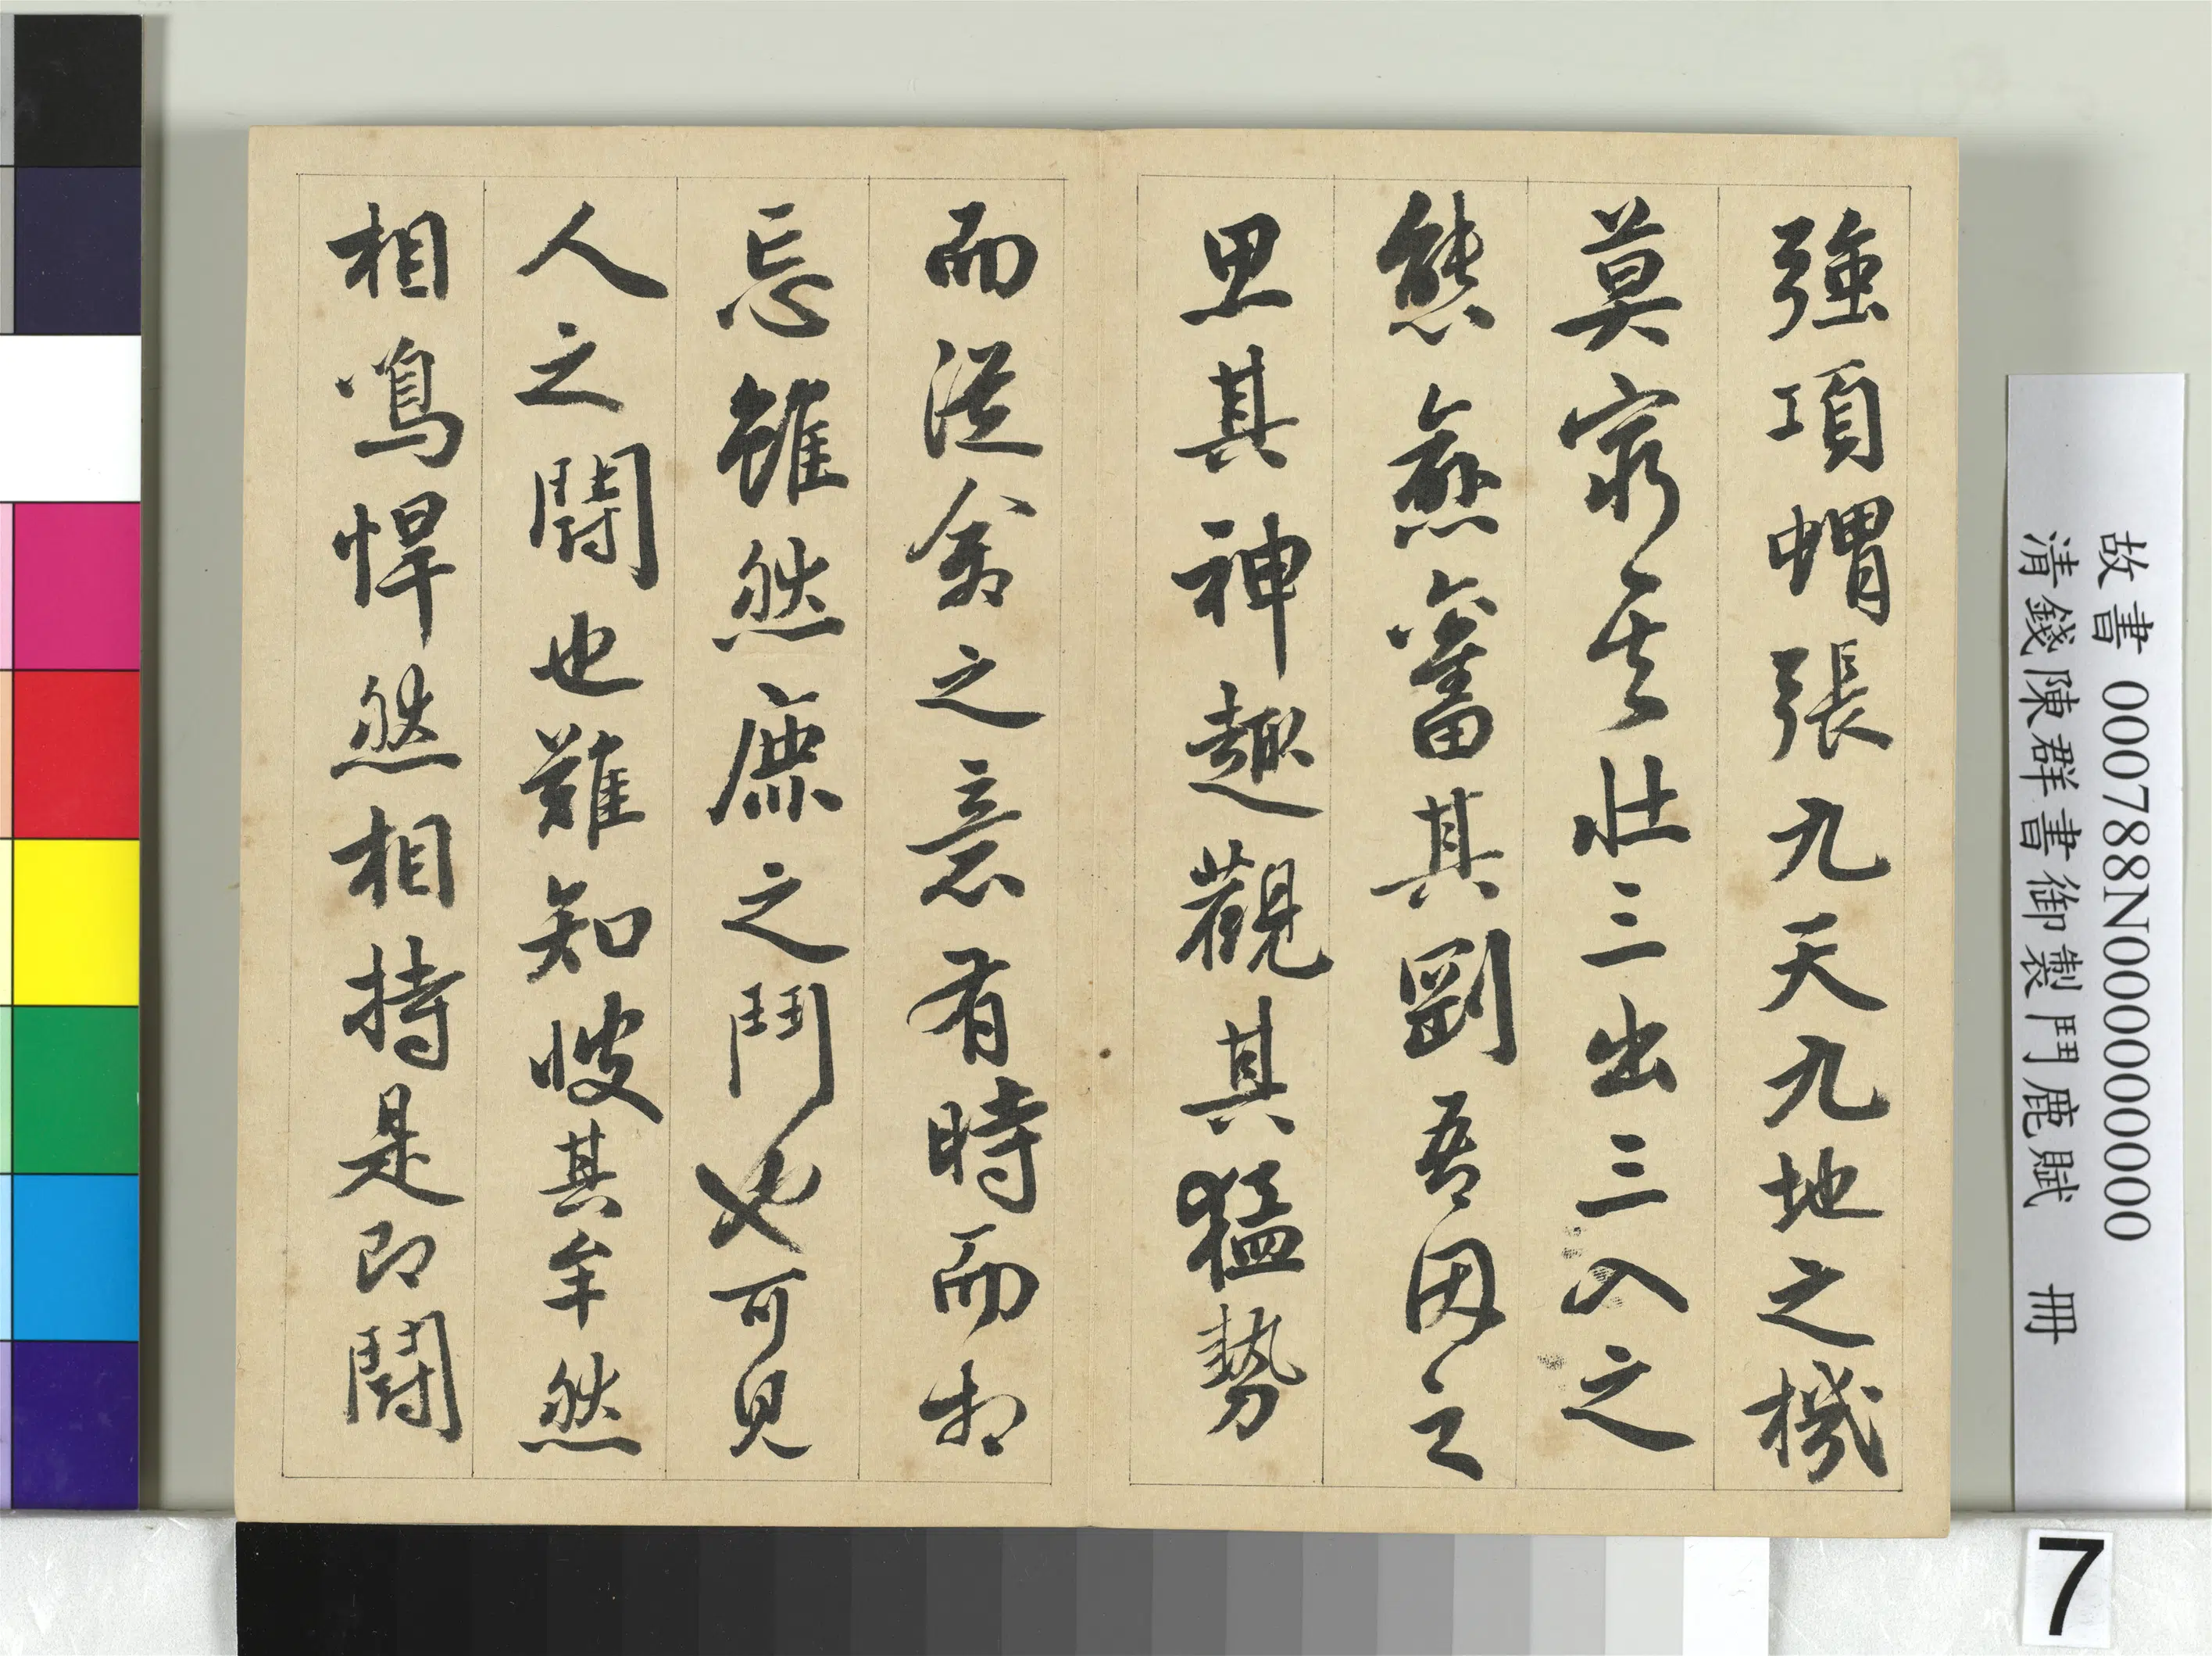 強項蝟張九天九地之機
莫窮其壯三出三入之
態愈奮其剛吾因之
思其神趣觀其猛勢
而從禽之意有時而相
忘雖然鹿之鬥也可見
人之鬪也難知彼其牟然
相鳴悍然相持是即鬪
故書 000788N000000000
清錢陳群書御製鬥鹿賦 冊
7